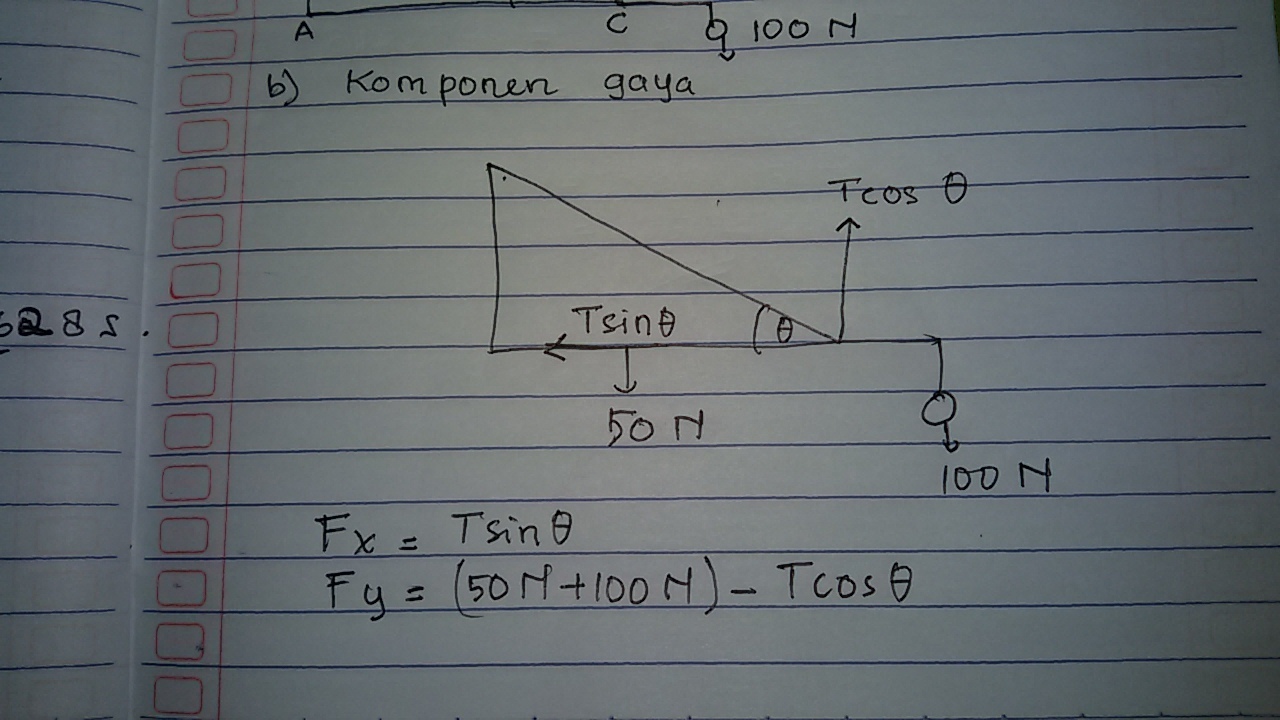 A C 100 N
b) Komponen gaya
Tcos θ
Tsinθ θ
628 s.
50 N
100 N
Fx = Tsinθ
Fy = (50 N + 100 N) - Tcosθ